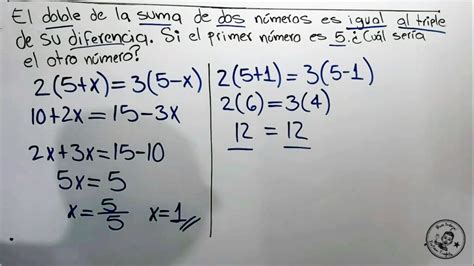 El doble de la suma de dos números es igual al triple
de su diferencia. Si el primer número es 5. ¿Cuál sería
el otro número?
2(5+x)=3(5-x)
10+2x=15-3x
2x+3x=15-10
5x=5
x=5/5 x=1
2(5+1)=3(5-1)
2(6)=3(4)
12 = 12